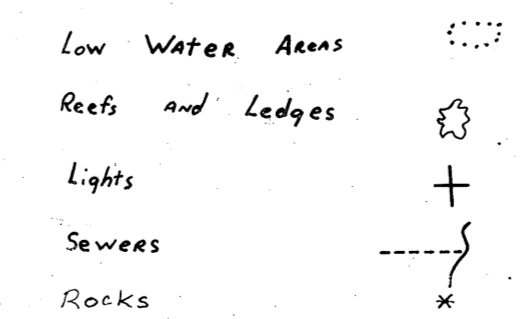 Low Water Areas
Reefs and Ledges
Lights
Sewers
Rocks